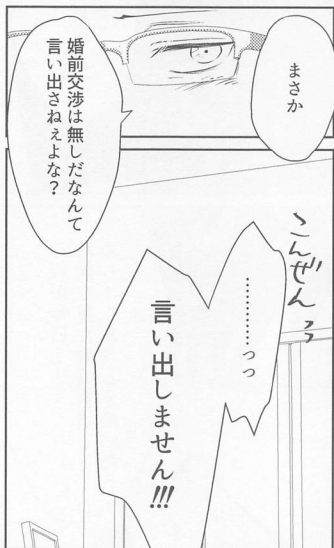 まさか
婚前交渉は無しだなんて
言い出さねぇよな?
こんぜんっっ
…………っっ
言い出しません!!!